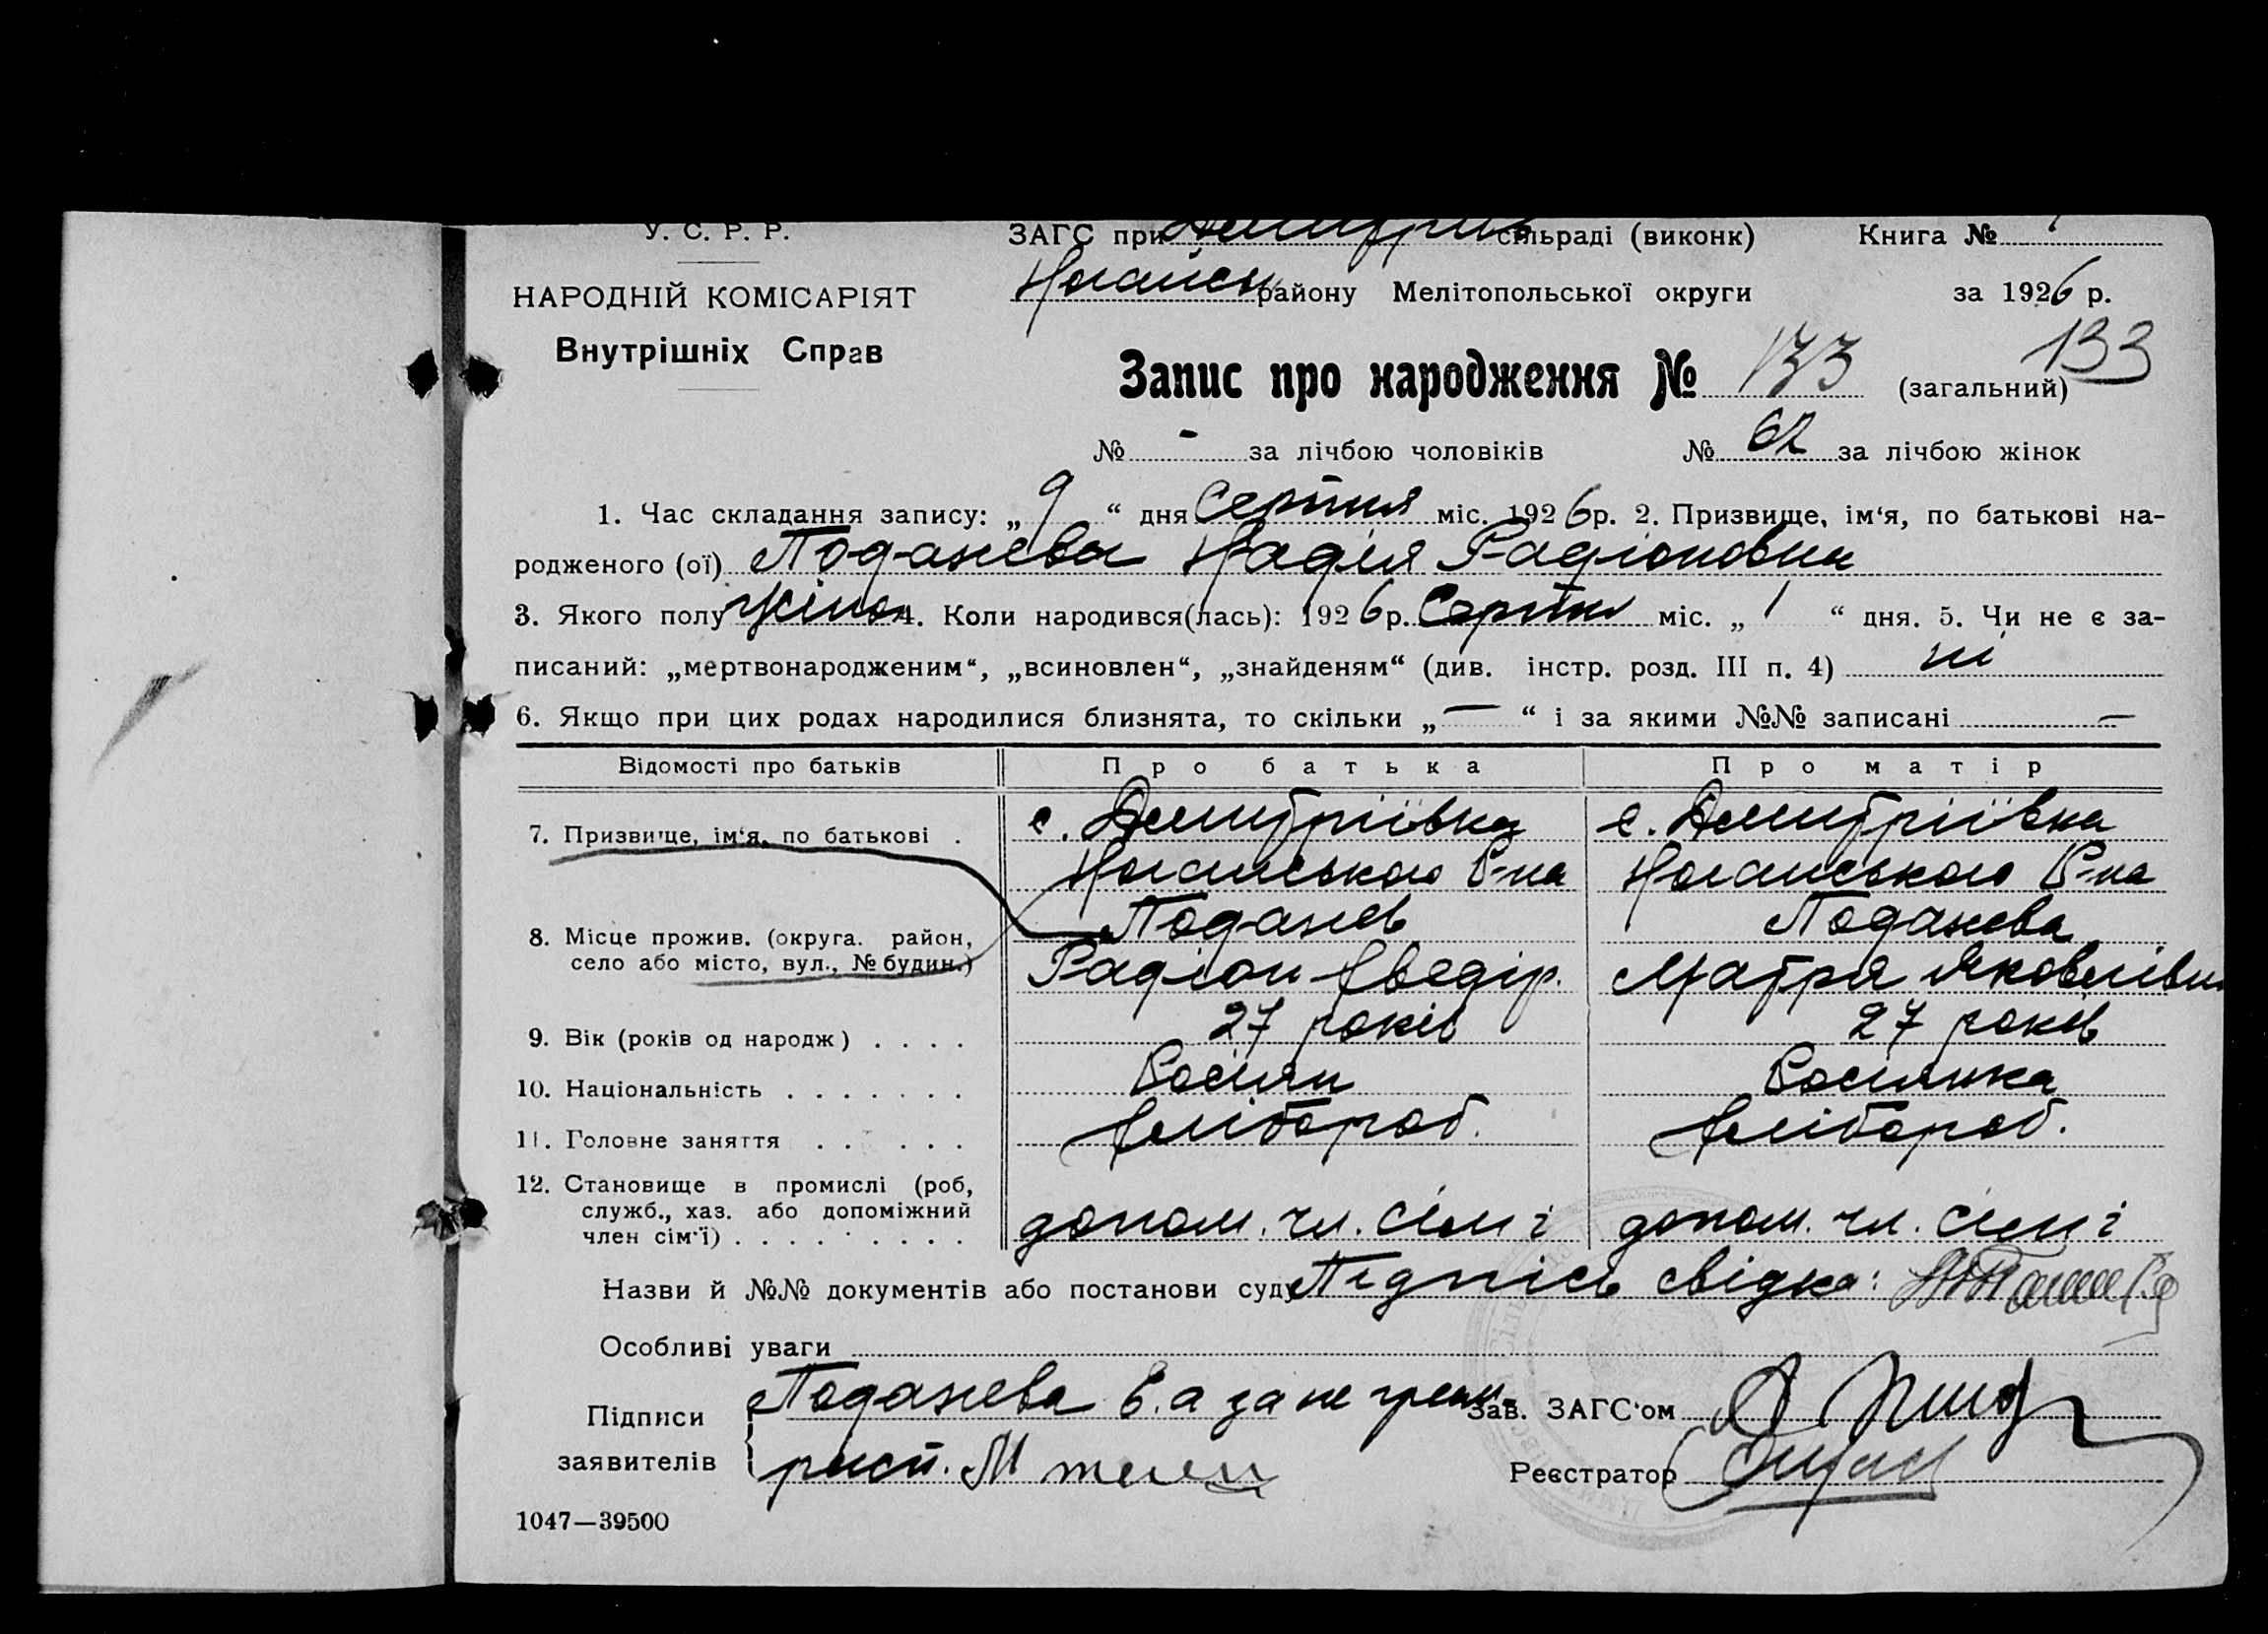 У. С. Р. Р.
НАРОДНІЙ КОМІСАРІЯТ
Внутрішніх Справ
ЗАГС при Дмитрів сільраді (виконк) Книга №
Ногайськ району Мелітопольської округи за 1926 р.
Запис про народження № 133 (загальний) 133
№ - за лічбою чоловіків № 62 за лічбою жінок
1. Час складання запису: „ 9 “ дня Серпня міс. 1926 р. 2. Призвище, ім‘я, по батькові на-
родженого (ої) Подажева Надія Радіоновна
3. Якого полу жіноч 4. Коли народився(лась): 1926 р. Серпн міс. „ 1 “ дня. 5. Чи не є за-
писаний: „мертвонародженим“, „всиновлен“, „знайденям“ (див. інстр. розд. III п. 4) ні
6. Якщо при цих родах народилися близнята, то скільки „ — “ і за якими №№ записані —
Відомості про батьків Про батька Про матір
7. Призвище, ім‘я, по батькові . с. Дмитріївка с. Дмитріївка
Ногайського Р-на Ногайського Р-на
8. Місце прожив. (округа. район, Подажев Подажева
село або місто, вул., № будин.) Радіон Хведір. Мотря Яковлівна
9. Вік (років од народж) . . . . 27 років 27 років
10. Національність . . . . . . . Росіян Росиянка
11. Головне заняття . . . . . . Хлібороб. Хлібороб.
12. Становище в промислі (роб,
служб., хаз. або допоміжний
член сім'ї) . . . . . . . . . . допом. чл. сімі допом. чл. сімі
Назви й №№ документів або постанови суду Підпісь свідка:
Особливі уваги
Підписи Подажева Є. а за не грам. Зав. ЗАГС'ом
заявителів расп. Реєстратор
1047—39500